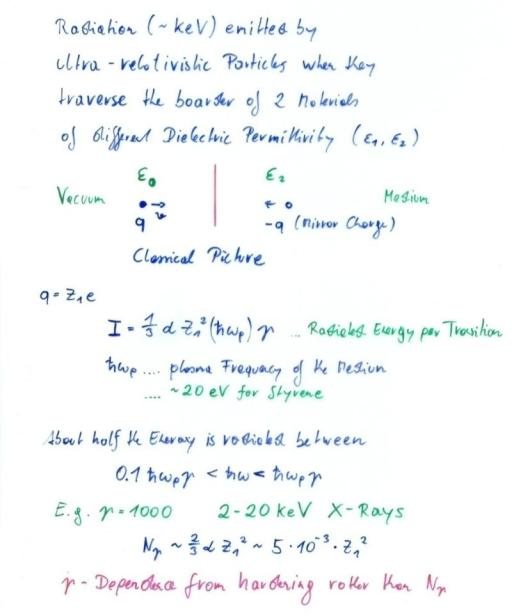 Radiation (~ keV) emitted by
ultra-relativistic Particles when they
traverse the boarder of 2 Materials
of different Dielectric Permittivity (ε₁, ε₂)
ε₀ ε₂
Vacuum Medium
q v -q (Mirror Charge)
Classical Picture
q = Z₁e
I = 1/3 α Z₁² (ħωₚ) γ ... Radiated Energy per Transition
ħωₚ .... plasma Frequency of the Medium
.... ~20 eV for Styrene
About half the Energy is radiated between
0.1 ħωₚγ < ħω < ħωₚγ
E.g. γ = 1000 2-20 keV X-Rays
Nᵧ ~ 2/3 α Z₁² ~ 5·10⁻³·Z₁²
γ - Dependence from hardening rather than Nᵧ